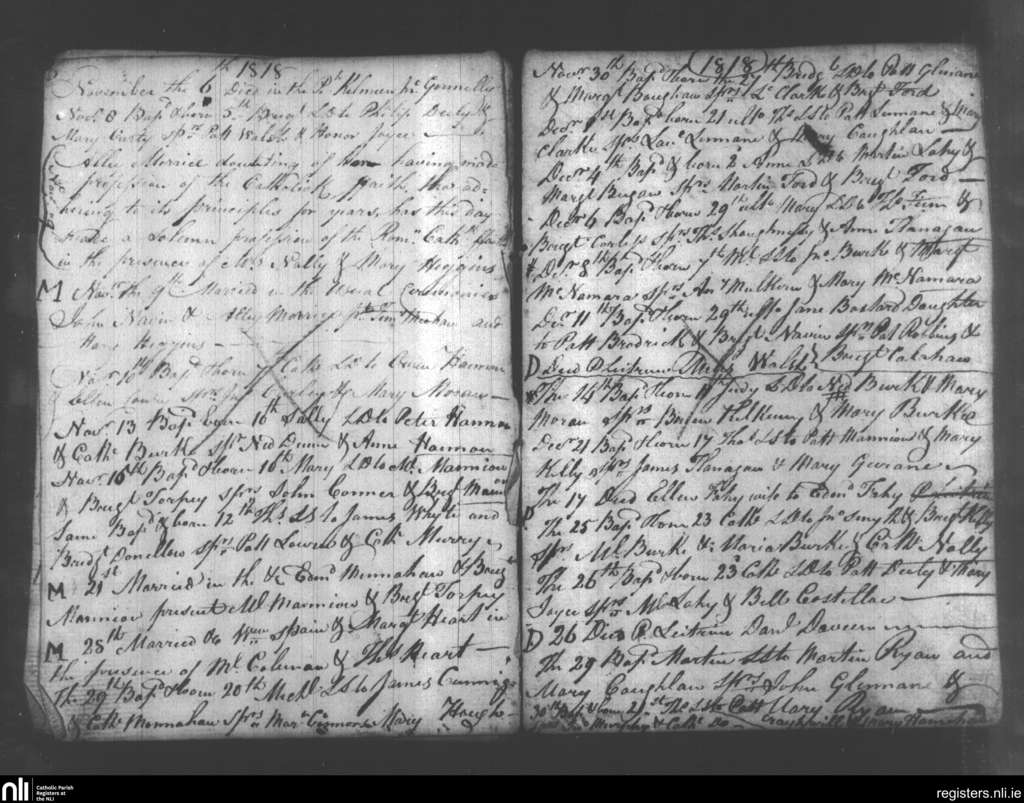 1818
November the 6th Died in the Ph Kelmen Mc Gonnelles
Novr 8 Bapd & born 5th Brigt LD to Philip Deely &
Mary Curty sprs Patt Walsh & Honor Joyce
Alley Morrice doubting of her having made
profession of the Catholick faith, tho ad-
hering to its principles for years, has this day
made a solemn profession of the Romn Cathk faith
in the presence of Nally & Mary Higgins
M Novr the 9th Married in the Usual Ceremonies
John Navin & Alley Morrice Thrahan and
Mary Higgins
Novr 10th Bapd & born Cathe LD to Owen Hannon
& Ellen sprs & Mary Moran
Novr 13 Bapd & born 10th Sally LD to Peter Hannon
& Cathe Burke sprs Ned Dunn & Anne Hannon
Novr 16th Bapd & born 16th Mary LD to Ml Mannion
& Bridgt Torpey sprs John Conner & Brigt Mannion
Same Bapd & born 12th Ths LS to James Whyte and
Bridgt Donellow sprs Patt Lowen & Cathe Murry
M 21st Married in the &c Edmd Monnahan & Bridgt
Mannion present Ml Mannion & Brigt Torpey
M 25th Married Do Wm Spain & Margt Heart in
the presence of Ml Coleman & Ths Heart
The 29th Bapd & born 20th Michl LS to James Cunnigs
& Cathe Monnahan sprs Mary Hough
1818
Novr 30th Bapd & born 29th Bridgt LD to Patt Glinane
& Margt Baughan sprs Lk Clarke & Brigt Ford
Decr 1st Bapd born 21 ulto Ths LS to Patt Linnane & Mary
Clarke sprs Laue Linnane & Mary Caughlan
Decr 4th Bapd & born 2 Anne LD to Martin Lahy &
Margt Bugan sprs Martin Ford & Brigt Ford
Decr 6 Bapd & born 29th ulto Mary LD to Ths Finn &
Brigt Corless sprs Ths Shaughnessy & Anne Flanagan
Decr 8th Bapd & born 7th Ml LS to Jno Burke & Margt
McNamara sprs Mulkern & Mary McNamara
Decr 11th Bapd & born 29th Jane Bastard Daughter
to Patt Brodrick & Brigt Navin sprs Pat &
Brigt Calahan
D Died P Leitrim Mary Walsh
The 14th Bapd & born 11 Judy LD to Ned Burk & Mary
Moran sprs Brien Kilkenny & Mary Burke
Decr 21 Bapd & born 17 Ths LS to Patt Mannion & Mary
Kelly sprs James Flanagan & Mary Gurane
The 17 Died Ellen Fahy wife to Edmd Fahy
The 25 Bapd & born 23 Cathe LD to Jno Smyth & Brigt Kelly
sprs Ml Burke & Maria Burke & Cathe Nally
The 26th Bapd & born 23 Cathe LD to Patt Deely & Mary
Joyce sprs Ml Lahy & Bell Costellae
D 26 Died P Leitrim Danl Daveen
The 29 Bapd Martin LS to Martin Ryan and
Mary Caughlan sprs John Glennane &
Mary Ryan
30th Bapd & born 21st Ths LS to Patt
Murphy & Cathe Mary Hanrahan
nli
Catholic Parish
Registers at
the NLI
registers.nli.ie